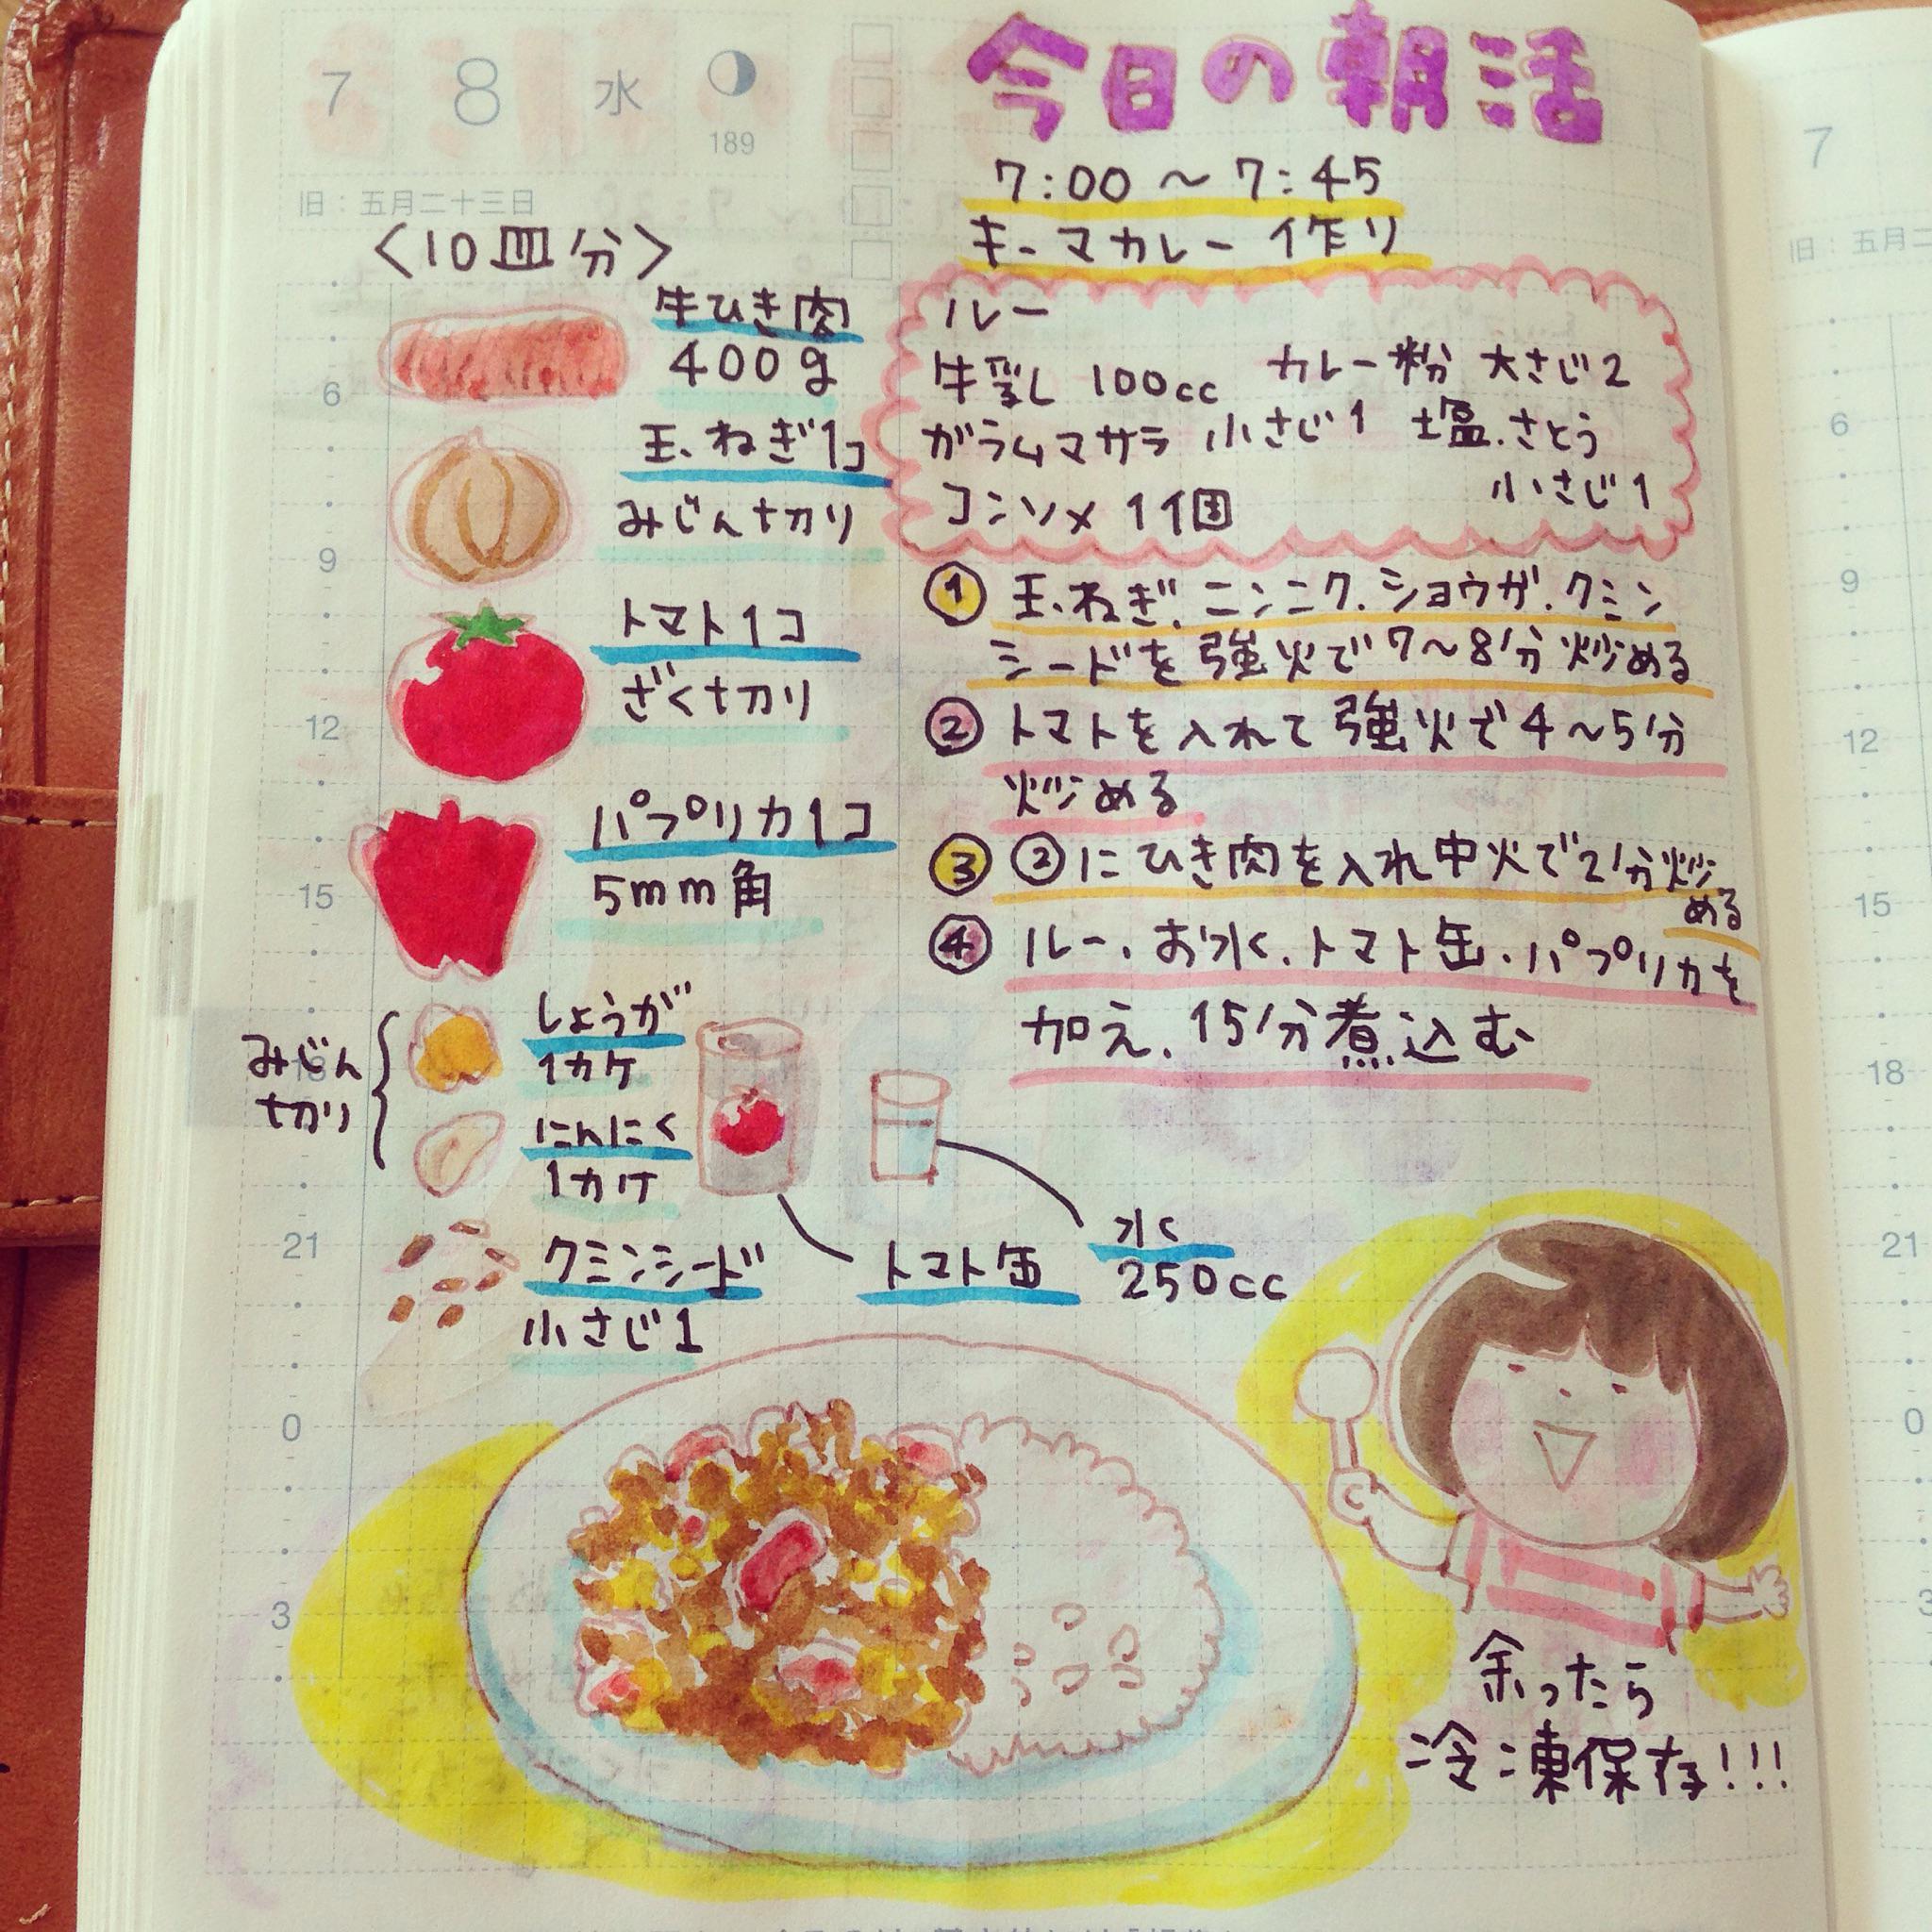 7 8 水
189
旧：五月二十三日
今日の朝活
7:00〜7:45
キーマカレー作り
<10皿分>
牛ひき肉
400g
玉ねぎ1コ
みじん切り
トマト1コ
ざく切り
パプリカ1コ
5mm角
みじん
切り
しょうが
1カケ
にんにく
1カケ
クミンシード
小さじ1
トマト缶
水
250cc
ルー
牛乳 100cc カレー粉 大さじ2
ガラムマサラ 小さじ1 塩.さとう
小さじ1
コンソメ 1個
① 玉ねぎ.ニンニク.ショウガ.クミン
シードを強火で7〜8分炒める
② トマトを入れて強火で4〜5分
炒める
③ ②にひき肉を入れ中火で2分炒
める
④ ルー.お水.トマト缶.パプリカを
加え、15分煮込む
余ったら
冷凍保存!!!
6
9
12
15
18
21
0
3
7
旧：五月二
6
9
12
15
18
21
0
3